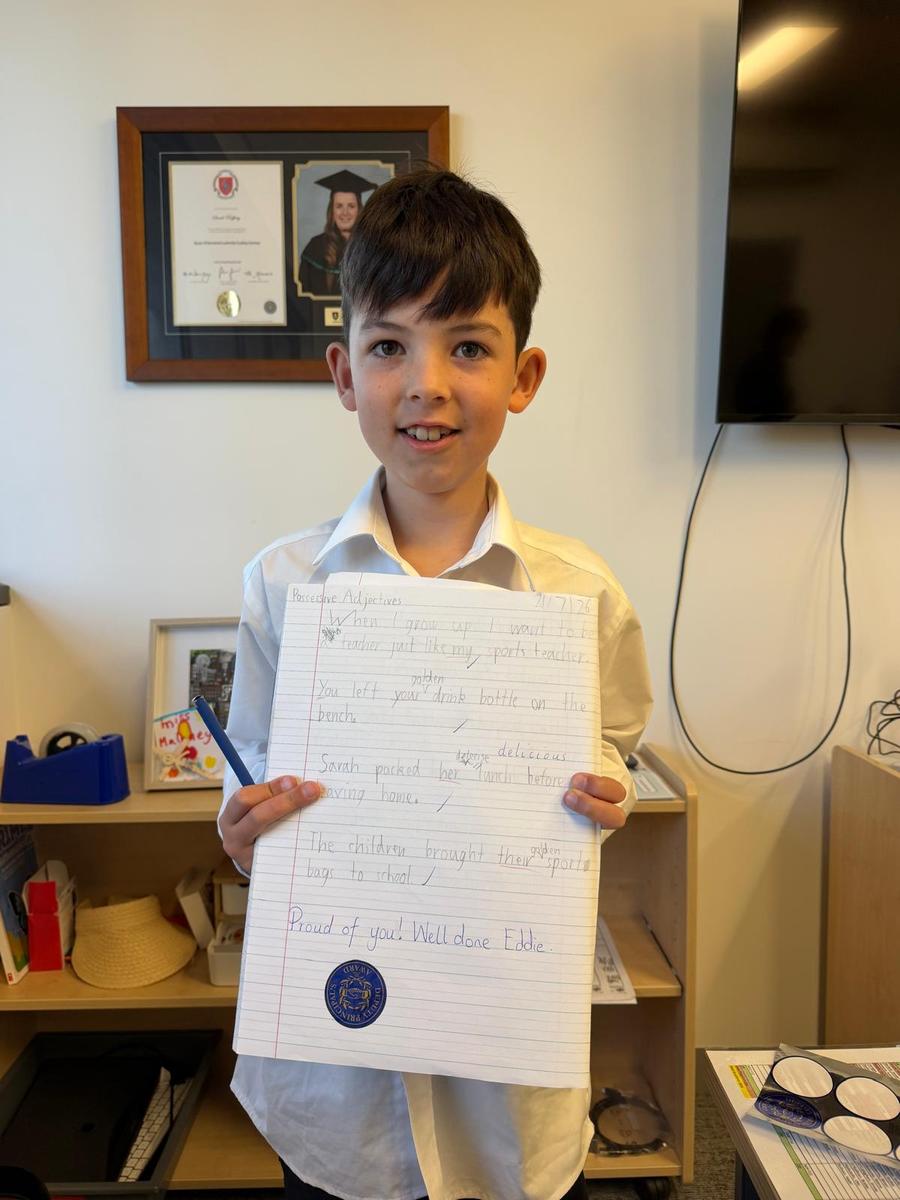 Possessive Adjectives
When I grow up, I want to be
a teacher just like my sports teacher.
golden
You left your drink bottle on the
bench.
delicious
Sarah packed her lunch before
leaving home.
golden
The children brought their sports
bags to school
Proud of you! Well done Eddie.
DEPUTY PRINCIPAL'S AWARD
miss